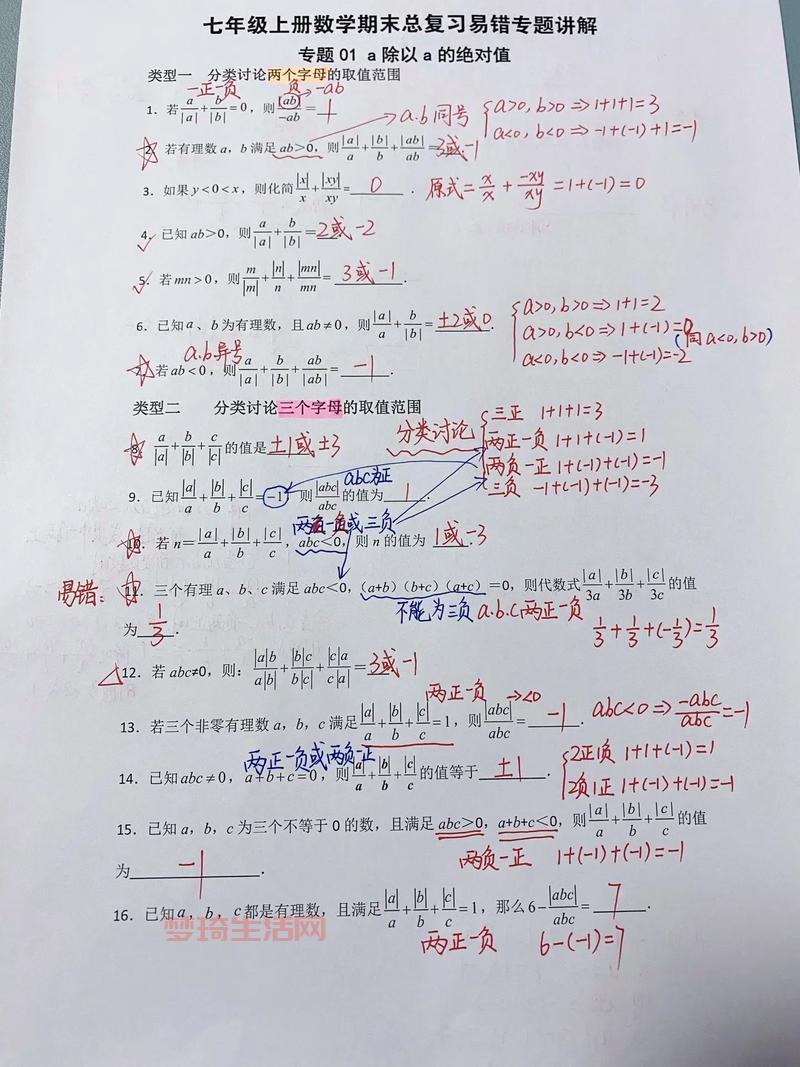 七年级上册数学期末总复习易错专题讲解
专题 01 a 除以 a 的绝对值
类型一 分类讨论两个字母的取值范围
一正一负 负→-ab
1. 若 a/|a| + b/|b| = 0，则 |ab|/-ab = 1
a.b同号 { a>0, b>0 ⇒ 1+1+1=3
a<0, b<0 ⇒ -1+(-1)+1=-1
2. 若有理数 a，b 满足 ab>0，则 |a|/a + |b|/b + |ab|/ab = 3或-1
3. 如果 y<0<x，则化简 |x|/x + |xy|/xy = 0 . 原式= x/x + -xy/xy =1+(-1)=0
4. 已知 ab>0，则 a/|a| + b/|b| = 2或-2
5. 若 mn>0，则 m/|m| + |n|/n + |mn|/mn = 3或-1 .
6. 已知 a、b 为有理数，且 ab≠0，则 |a|/a + b/|b| = ±2或0 .
{ a>0, b>0 ⇒ 1+1=2
a>0, b<0 ⇒ 1+(-1)=0
(同 a<0, b>0)
a<0, b<0 ⇒ -1+(-1)=-2
a.b异号
7. 若 ab<0，则 a/|a| + b/|b| + ab/|ab| = -1 .
类型二 分类讨论三个字母的取值范围
8. a/|a| + b/|b| + c/|c| 的值是 ±1或±3
分类讨论 { 三正 1+1+1=3
两正一负 1+1+(-1)=1
两负一正 1+(-1)+(-1)=-1
三负 -1+(-1)+(-1)=-3
abc为正
9. 已知 |a|/a + |b|/b + |c|/c = -1，则 |abc|/abc 的值为 1 .
两正一负或三负
10. 若 n= |a|/a + |b|/b + |c|/c，abc<0，则 n 的值为 1或-3
易错：11. 三个有理 a、b、c 满足 abc<0，(a+b)(b+c)(a+c) =0，则代数式 |a|/3a + |b|/3b + |c|/3c 的值
不能为三负 a.b.c两正一负
为 1/3 .
1/3 + 1/3 + (-1/3) = 1/3
12. 若 abc≠0，则： |a|b/a|b| + |b|c/b|c| + |c|a/c|a| = 3或-1
两正一负 →<0
13. 若三个非零有理数 a，b，c 满足 |a|/a + |b|/b + |c|/c = 1，则 |abc|/abc = -1 .
abc<0 ⇒ -abc/abc =-1
两正一负或两负一正
14. 已知 abc≠0，a+b+c=0，则 |a|/a + |b|/b + |c|/c 的值等于 ±1 .
{ 2正1负 1+1+(-1)=1
2负1正 1+(-1)+(-1)=-1
15. 已知 a，b，c 为三个不等于 0 的数，且满足 abc>0，a+b+c<0，则 |a|/a + |b|/b + |c|/c 的值
两负一正 1+(-1)+(-1)=-1
为 -1 .
16. 已知 a，b，c 都是有理数，且满足 |a|/a + |b|/b + |c|/c = 1，那么 6- |abc|/abc = 7 .
梦琦生活网
两正一负 6-(-1)=7